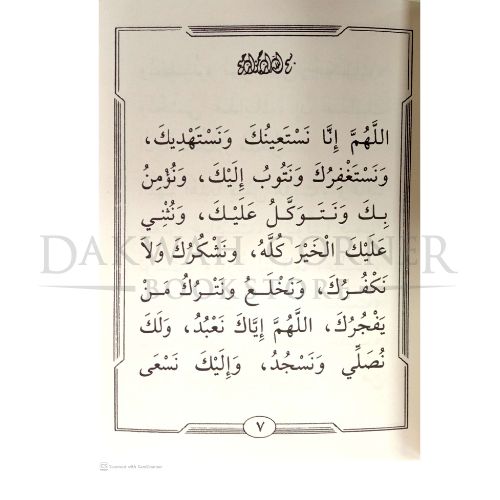 بسم الله الرحمن الرحيم
اللَّهُمَّ إِنَّا نَسْتَعِينُكَ وَنَسْتَهْدِيكَ،
وَنَسْتَغْفِرُكَ وَنَتُوبُ إِلَيْكَ، وَنُؤْمِنُ
بِكَ وَنَتَوَكَّلُ عَلَيْكَ، وَنُثْنِي
عَلَيْكَ الْخَيْرَ كُلَّهُ، وَنَشْكُرُكَ وَلاَ
نَكْفُرُكَ، وَنَخْلَعُ وَنَتْرُكُ مَنْ
يَفْجُرُكَ، اللَّهُمَّ إِيَّاكَ نَعْبُدُ، وَلَكَ
نُصَلِّي وَنَسْجُدُ، وَإِلَيْكَ نَسْعَى
٧
DAKWAH CORNER
BOOKSTORE
CS Scanned with CamScanner